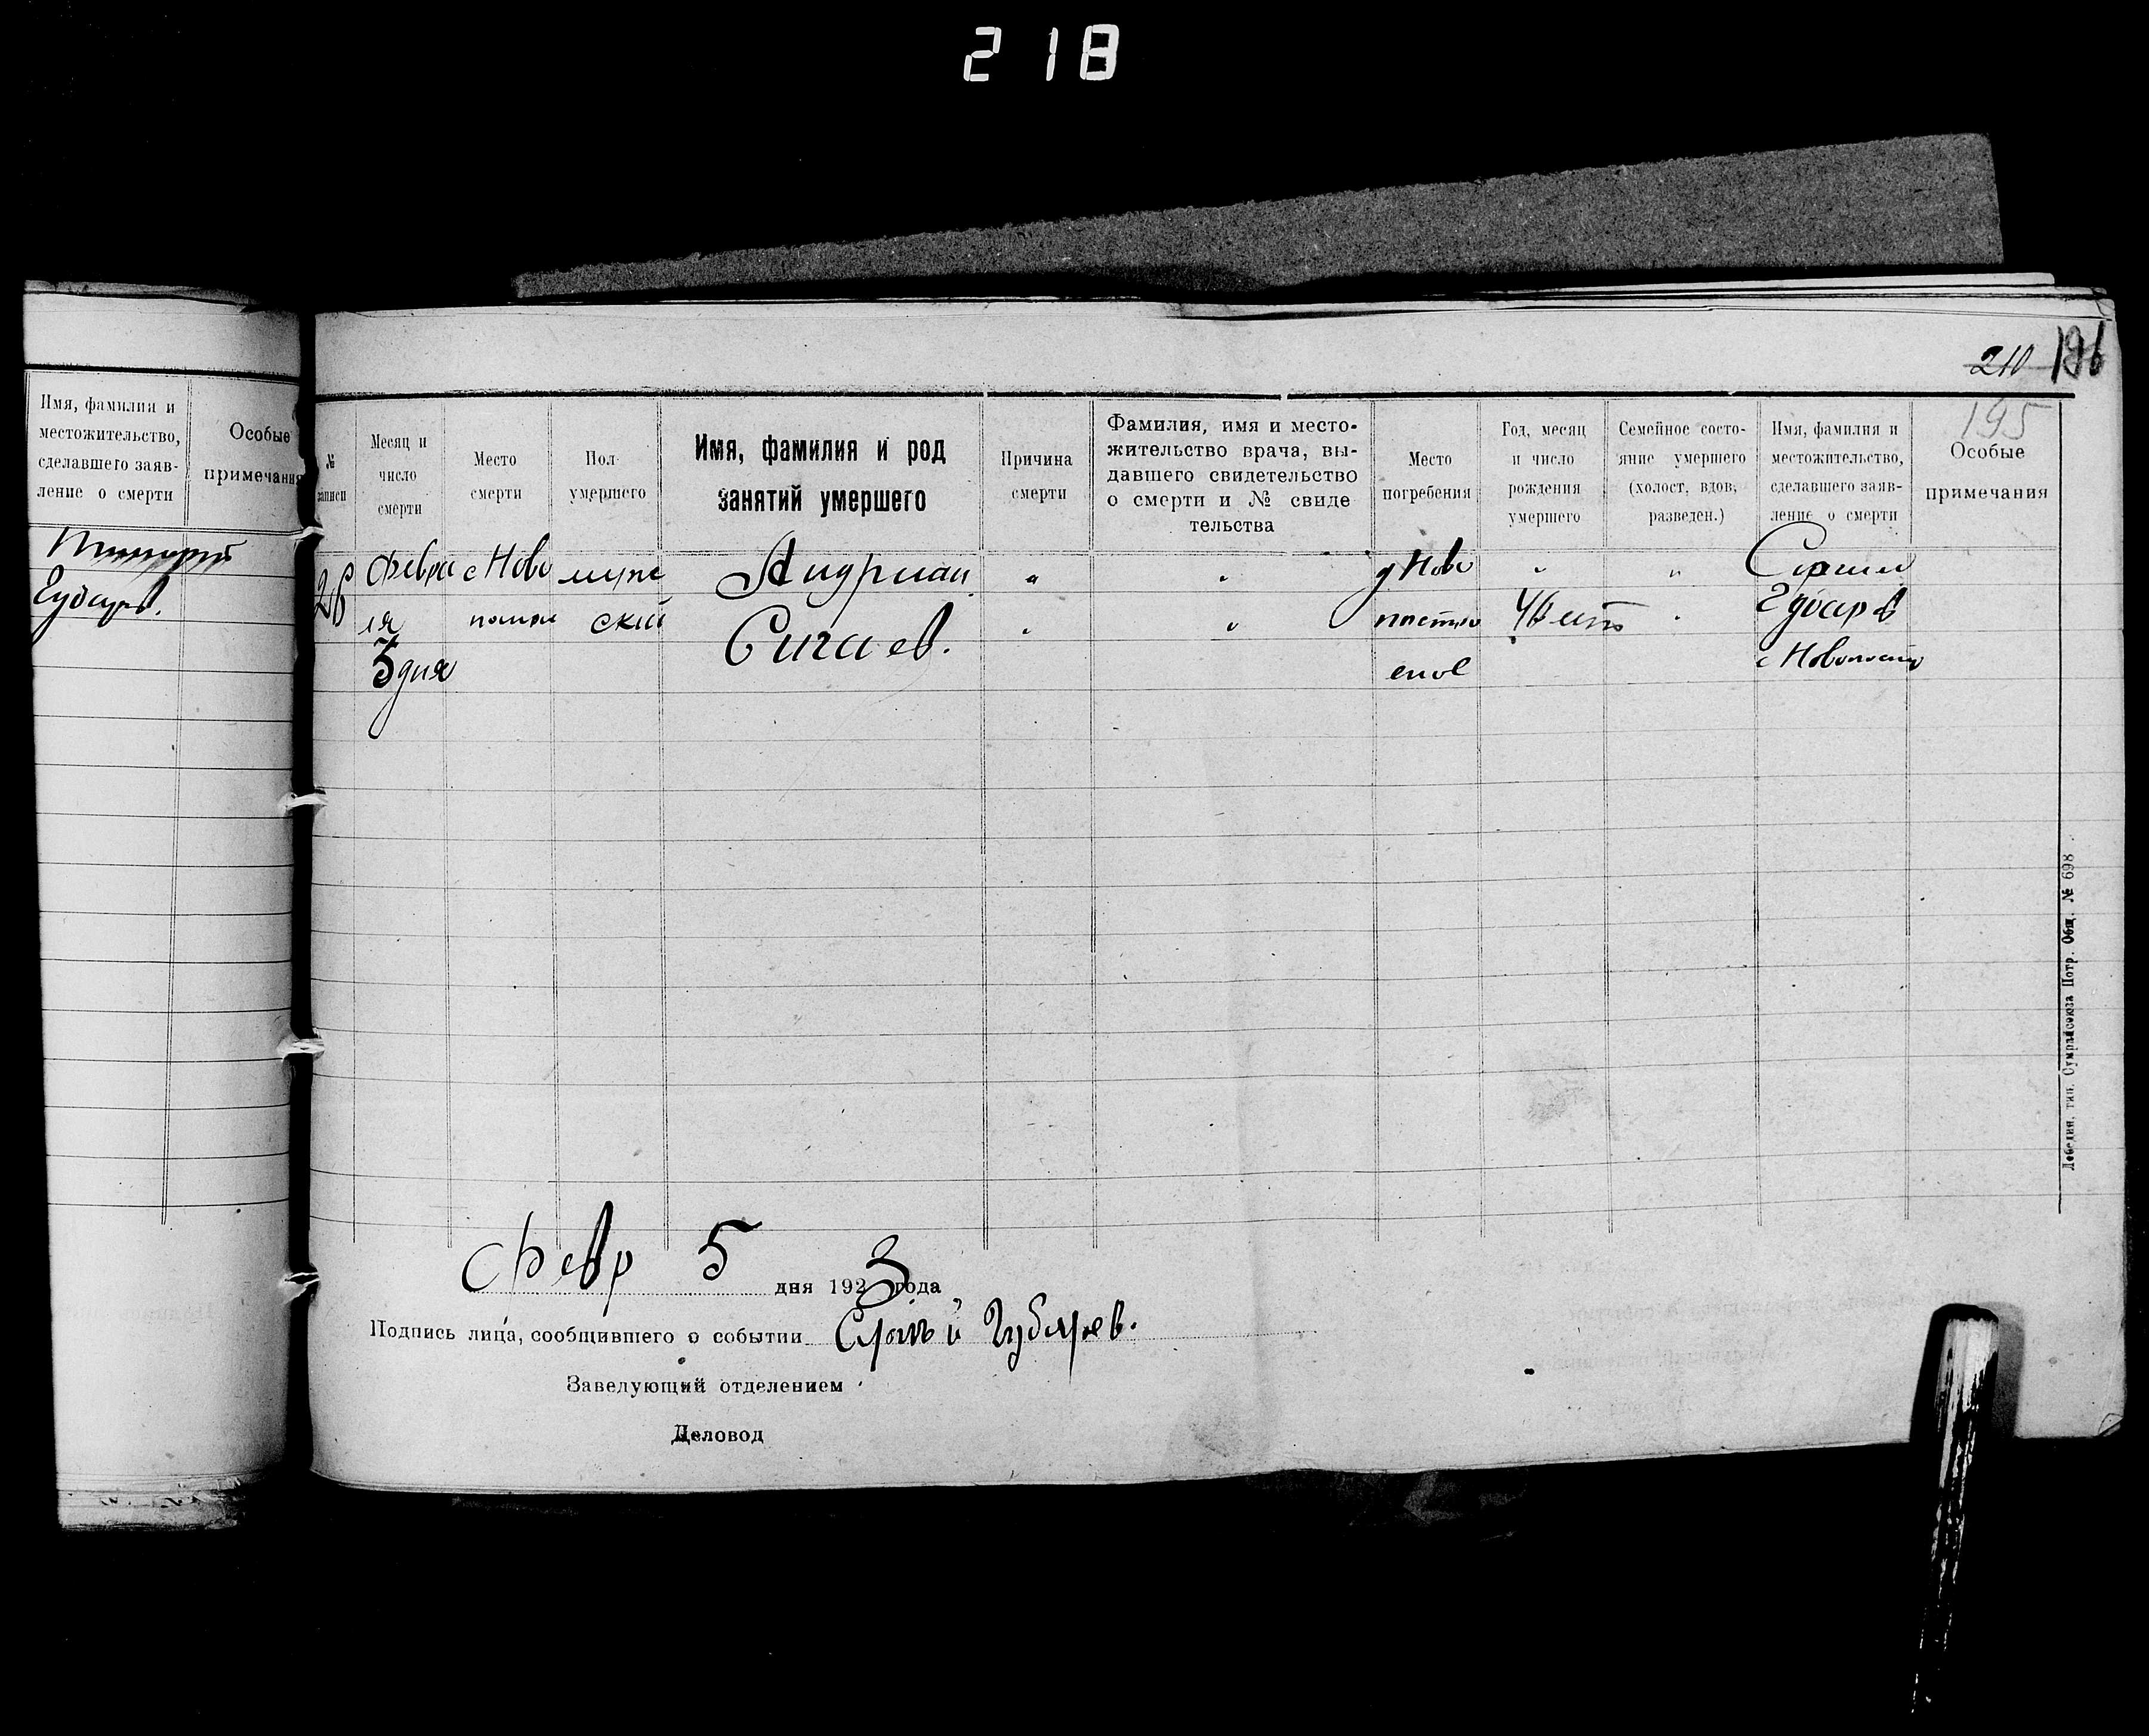 218
210 196
195
Имя, фамилия и
местожительство,
сделавшего заяв-
ление о смерти
Особые
примечания
№
записи
Месяц и
число
смерти
Место
смерти
Пол
умершего
Имя, фамилия и род
занятий умершего
Причина
смерти
Фамилия, имя и место-
жительство врача, вы-
давшего свидетельство
о смерти и № свиде
тельства
Место
погребения
Год, месяц
и число
рождения
умершего
Семейное состо-
яние умершего
(холост, вдов,
разведен.)
Имя, фамилия и
местожительство,
сделавшего заяв-
ление о смерти
Особые
примечания
26
Февра
ля
3 дня
с Ново
муже
ский
Андриан
Сигаев.
Ново
Февр 5 дня 1923 года
Подпись лица, сообщившего о событии Губарев.
Заведующий отделением
Деловод
Лебедин. тип. Сумрайсоюза Потр. Общ. № 698